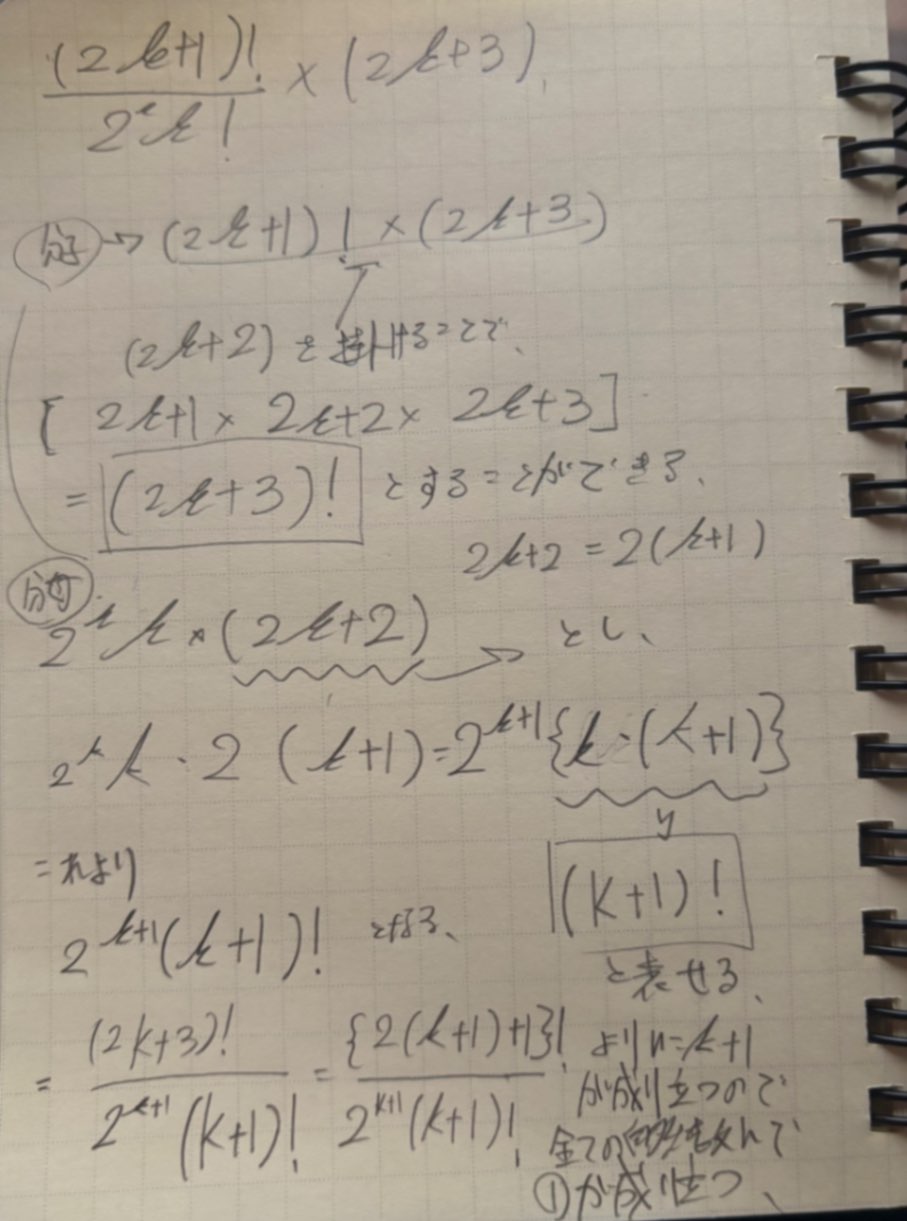 (2k+1)! / 2^k k! × (2k+3)
分子 → (2k+1)! × (2k+3)
(2k+2)を掛けることで、
[ 2k+1 × 2k+2 × 2k+3 ]
= (2k+3)! とすることができる、
2k+2 = 2(k+1)
分母
2^k k × (2k+2) → とし、
2^k k・2 (k+1) = 2^{k+1} {k・(k+1)}
(k+1)!
と表せる、
これより
2^{k+1} (k+1)! となる、
= (2k+3)! / 2^{k+1} (k+1)! = {2(k+1)+1}! / 2^{k+1} (k+1)!
よりn=k+1
が成り立つので
全ての自然数nで
①が成り立つ、